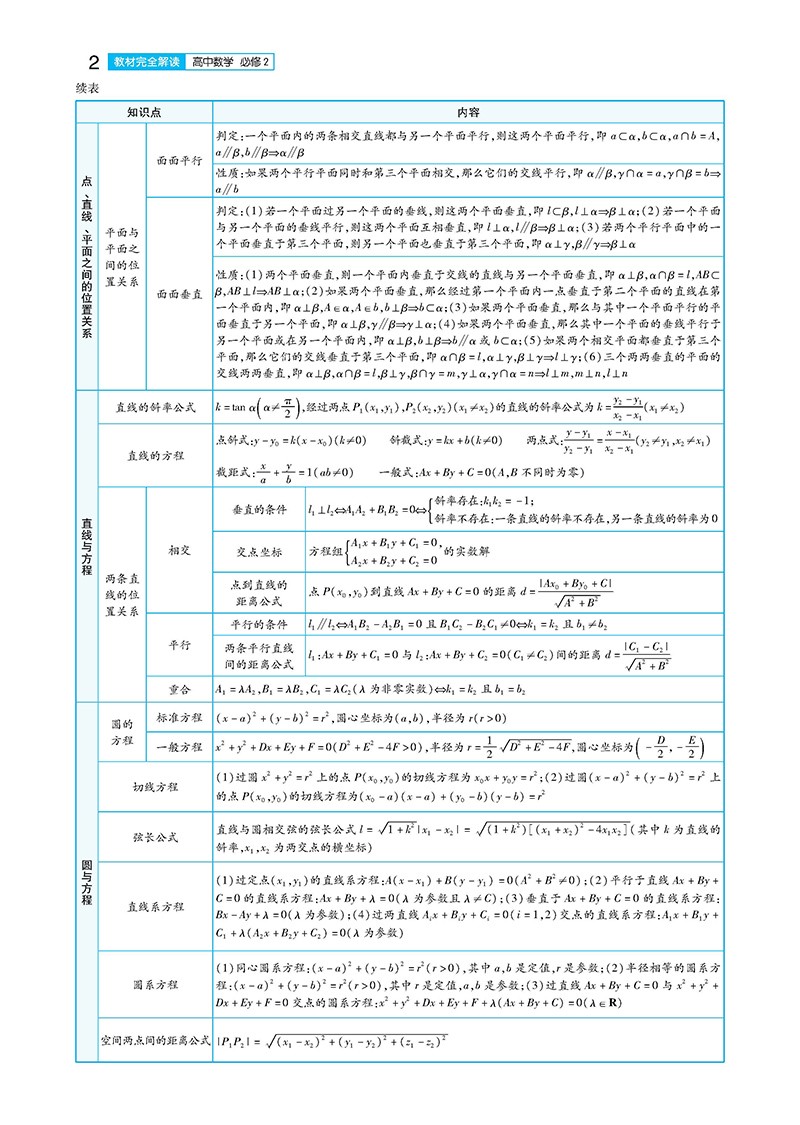 2 教材完全解读 高中数学 必修2
续表
知识点 内容
点、直线、平面之间的位置关系
平面与平面之间的位置关系
面面平行
判定:一个平面内的两条相交直线都与另一个平面平行,则这两个平面平行,即 a⊂α,b⊂α,a∩b=A,
a∥β,b∥β⇒α∥β
性质:如果两个平行平面同时和第三个平面相交,那么它们的交线平行,即 α∥β,γ∩α=a,γ∩β=b⇒
a∥b
面面垂直
判定:(1)若一个平面过另一个平面的垂线,则这两个平面垂直,即 l⊂β,l⊥α⇒β⊥α;(2)若一个平面
与另一个平面的垂线平行,则这两个平面互相垂直,即 l⊥α,l∥β⇒β⊥α;(3)若两个平行平面中的一
个平面垂直于第三个平面,则另一个平面也垂直于第三个平面,即 α⊥γ,β∥γ⇒β⊥α
性质:(1)两个平面垂直,则一个平面内垂直于交线的直线与另一个平面垂直,即 α⊥β,α∩β=l,AB⊂
β,AB⊥l⇒AB⊥α;(2)如果两个平面垂直,那么经过第一个平面内一点垂直于第二个平面的直线在第
一个平面内,即 α⊥β,A∈α,A∈b,b⊥β⇒b⊂α;(3)如果两个平面垂直,那么与其中一个平面平行的平
面垂直于另一个平面,即 α⊥β,γ∥β⇒γ⊥α;(4)如果两个平面垂直,那么其中一个平面的垂线平行于
另一个平面或在另一个平面内,即 α⊥β,b⊥β⇒b∥α 或 b⊂α;(5)如果两个相交平面都垂直于第三个
平面,那么它们的交线垂直于第三个平面,即 α∩β=l,α⊥γ,β⊥γ⇒l⊥γ;(6)三个两两垂直的平面的
交线两两垂直,即 α⊥β,α∩β=l,β⊥γ,β∩γ=m,γ⊥α,γ∩α=n⇒l⊥m,m⊥n,l⊥n
直线与方程
直线的斜率公式
k=tan α(α≠π/2),经过两点 P₁(x₁,y₁),P₂(x₂,y₂)(x₁≠x₂)的直线的斜率公式为 k=(y₂-y₁)/(x₂-x₁)(x₁≠x₂)
直线的方程
点斜式:y-y₀=k(x-x₀)(k≠0) 斜截式:y=kx+b(k≠0) 两点式:(y-y₁)/(y₂-y₁)=(x-x₁)/(x₂-x₁)(y₂≠y₁,x₂≠x₁)
截距式:x/a+y/b=1(ab≠0) 一般式:Ax+By+C=0(A,B 不同时为零)
两条直线的位置关系
相交
垂直的条件
l₁⊥l₂⇔A₁A₂+B₁B₂=0⇔{斜率存在:k₁k₂=-1;
斜率不存在:一条直线的斜率不存在,另一条直线的斜率为0
交点坐标
方程组{A₁x+B₁y+C₁=0,
A₂x+B₂y+C₂=0 的实数解
点到直线的
距离公式
点 P(x₀,y₀)到直线 Ax+By+C=0 的距离 d=|Ax₀+By₀+C|/√(A²+B²)
平行
平行的条件
l₁∥l₂⇔A₁B₂-A₂B₁=0 且 B₁C₂-B₂C₁≠0⇔k₁=k₂ 且 b₁≠b₂
两条平行直线
间的距离公式
l₁:Ax+By+C₁=0 与 l₂:Ax+By+C₂=0(C₁≠C₂)间的距离 d=|C₁-C₂|/√(A²+B²)
重合
A₁=λA₂,B₁=λB₂,C₁=λC₂(λ 为非零实数)⇔k₁=k₂ 且 b₁=b₂
圆与方程
圆的
方程
标准方程
(x-a)²+(y-b)²=r²,圆心坐标为(a,b),半径为 r(r>0)
一般方程
x²+y²+Dx+Ey+F=0(D²+E²-4F>0),半径为 r=1/2√(D²+E²-4F),圆心坐标为(-D/2,-E/2)
切线方程
(1)过圆 x²+y²=r² 上的点 P(x₀,y₀)的切线方程为 x₀x+y₀y=r²;(2)过圆(x-a)²+(y-b)²=r² 上
的点 P(x₀,y₀)的切线方程为(x₀-a)(x-a)+(y₀-b)(y-b)=r²
弦长公式
直线与圆相交弦的弦长公式 l=√(1+k²)|x₁-x₂|=√((1+k²)[(x₁+x₂)²-4x₁x₂])(其中 k 为直线的
斜率,x₁,x₂ 为两交点的横坐标)
直线系方程
(1)过定点(x₁,y₁)的直线系方程:A(x-x₁)+B(y-y₁)=0(A²+B²≠0);(2)平行于直线 Ax+By+
C=0 的直线系方程:Ax+By+λ=0(λ 为参数且 λ≠C);(3)垂直于 Ax+By+C=0 的直线系方程:
Bx-Ay+λ=0(λ 为参数);(4)过两直线 Aᵢx+Bᵢy+Cᵢ=0(i=1,2)交点的直线系方程:A₁x+B₁y+
C₁+λ(A₂x+B₂y+C₂)=0(λ 为参数)
圆系方程
(1)同心圆系方程:(x-a)²+(y-b)²=r²(r>0),其中 a,b 是定值,r 是参数;(2)半径相等的圆系方
程:(x-a)²+(y-b)²=r²(r>0),其中 r 是定值,a,b 是参数;(3)过直线 Ax+By+C=0 与 x²+y²+
Dx+Ey+F=0 交点的圆系方程:x²+y²+Dx+Ey+F+λ(Ax+By+C)=0(λ∈R)
空间两点间的距离公式
|P₁P₂|=√((x₁-x₂)²+(y₁-y₂)²+(z₁-z₂)²)